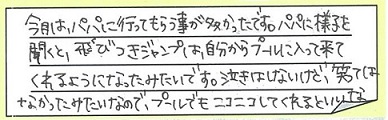 今月は、パパに行ってもらう事が多かったです。パパに様子を
聞くと、飛びつきジャンプは、自分からプールに入って来て
くれるようになったみたいです。泣きはしないけど、笑ては
なかったみたいなので、プールでもニコニコしてくれるといいな